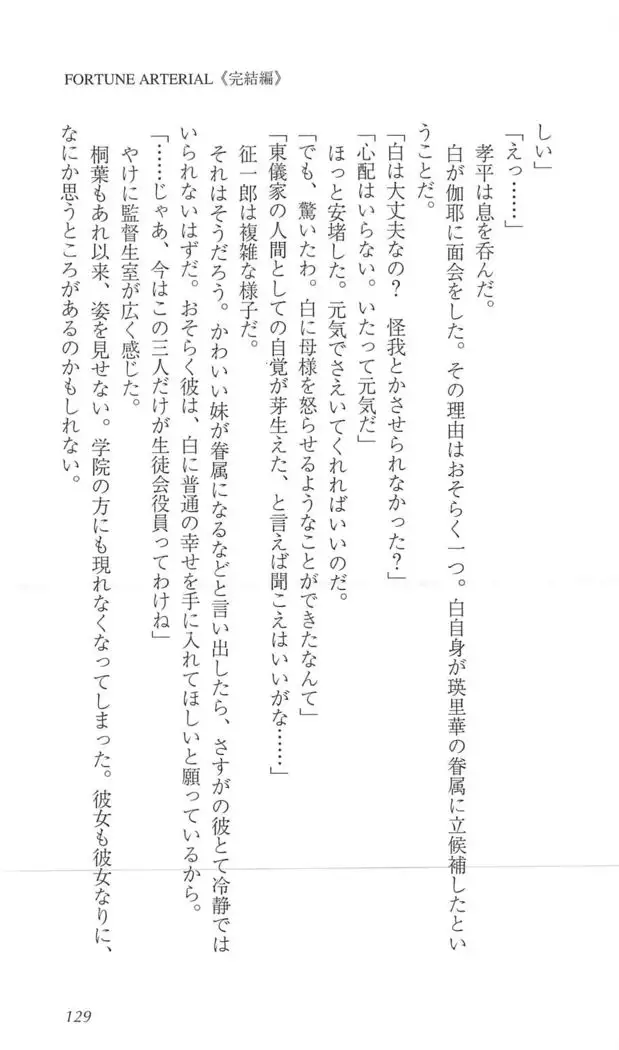 FORTUNE ARTERIAL《完結編》
しい」
「えっ……」
孝平は息を呑んだ。
白が伽耶に面会をした。その理由はおそらく一つ。白自身が瑛里華の眷属に立候補したとい
うことだ。
「白は大丈夫なの？　怪我とかさせられなかった？」
「心配はいらない。いたって元気だ」
ほっと安堵した。元気でさえいてくれればいいのだ。
「でも、驚いたわ。白に母様を怒らせるようなことができたなんて」
「東儀家の人間としての自覚が芽生えた、と言えば聞こえはいいがな……」
征一郎は複雑な様子だ。
それはそうだろう。かわいい妹が眷属になるなどと言い出したら、さすがの彼とて冷静では
いられないはずだ。おそらく彼は、白に普通の幸せを手に入れてほしいと願っているから。
「……じゃあ、今はこの三人だけが生徒会役員ってわけね」
やけに監督生室が広く感じた。
桐葉もあれ以来、姿を見せない。学院の方にも現れなくなってしまった。彼女も彼女なりに、
なにか思うところがあるのかもしれない。
129